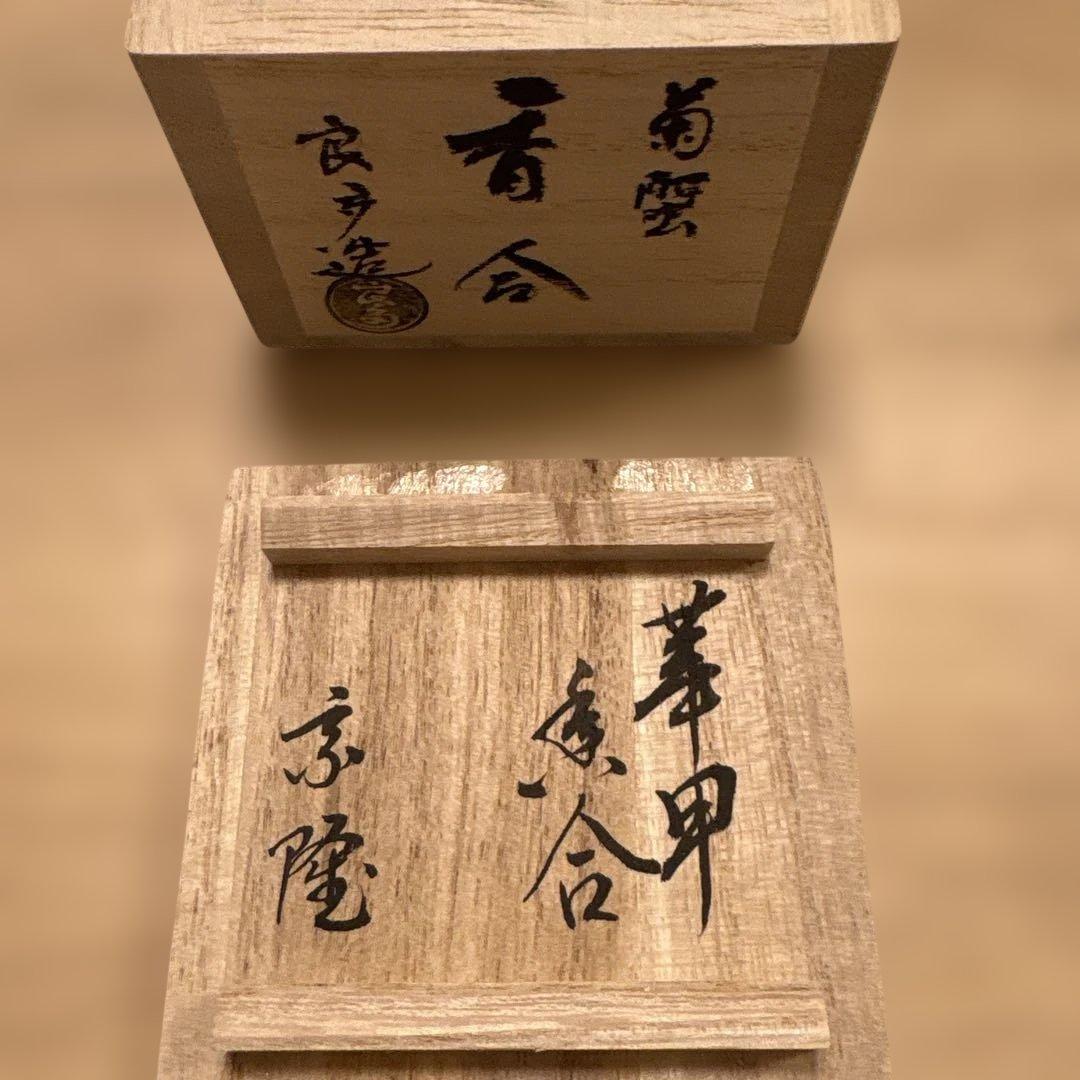 菊蟹
香合
良 造
華甲
香合
宗隆